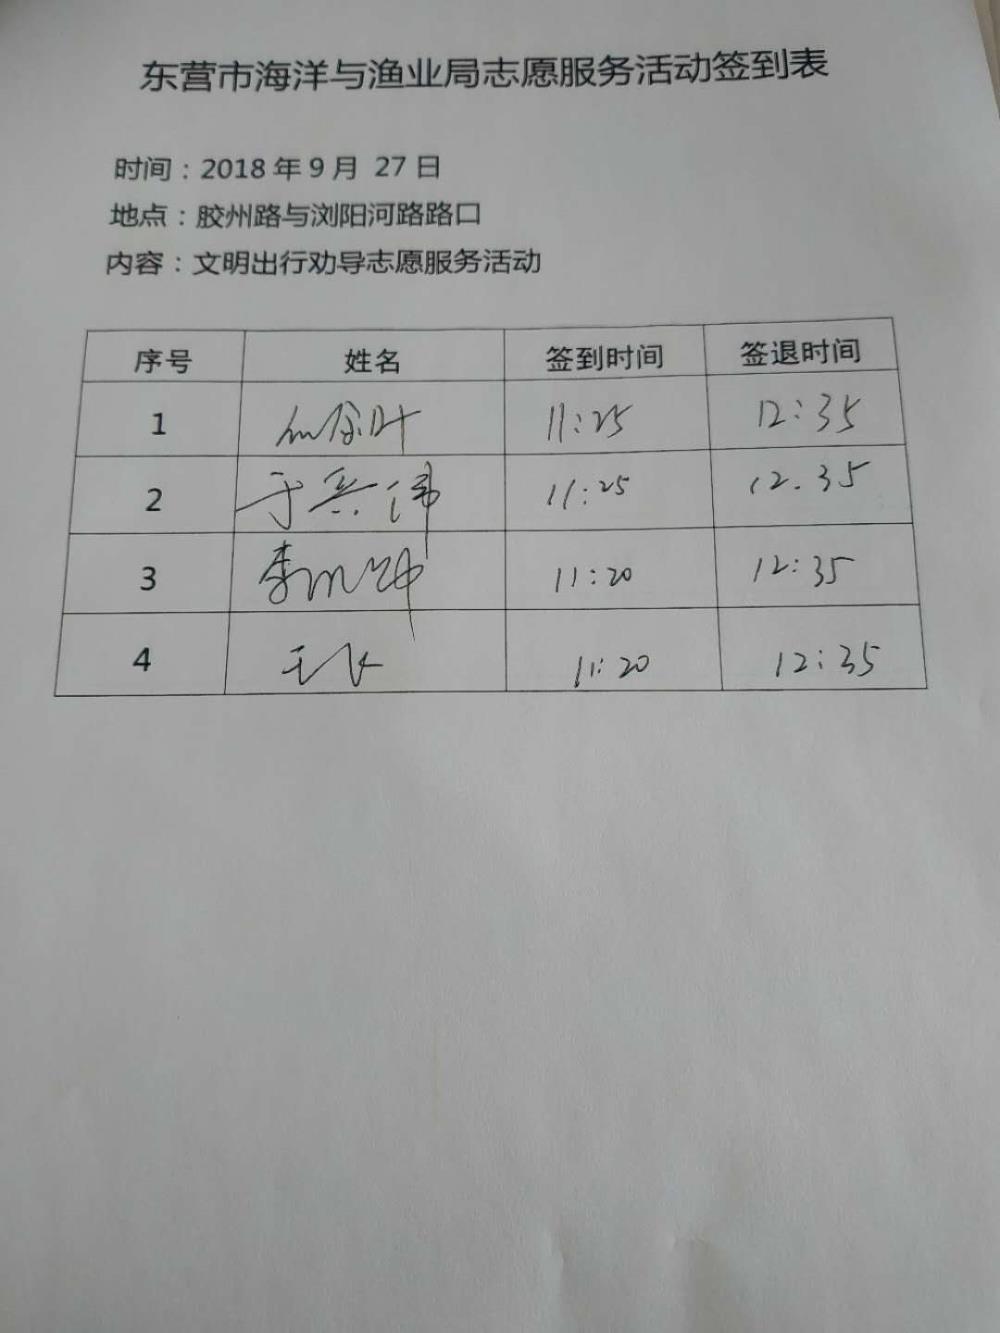 东营市海洋与渔业局志愿服务活动签到表
时间：2018 年 9 月 27 日
地点：胶州路与浏阳河路路口
内容：文明出行劝导志愿服务活动
序号 姓名 签到时间 签退时间
1 11:25 12:35
2 于兴伟 11:25 12.35
3 李 11:20 12:35
4 王飞 11:20 12:35